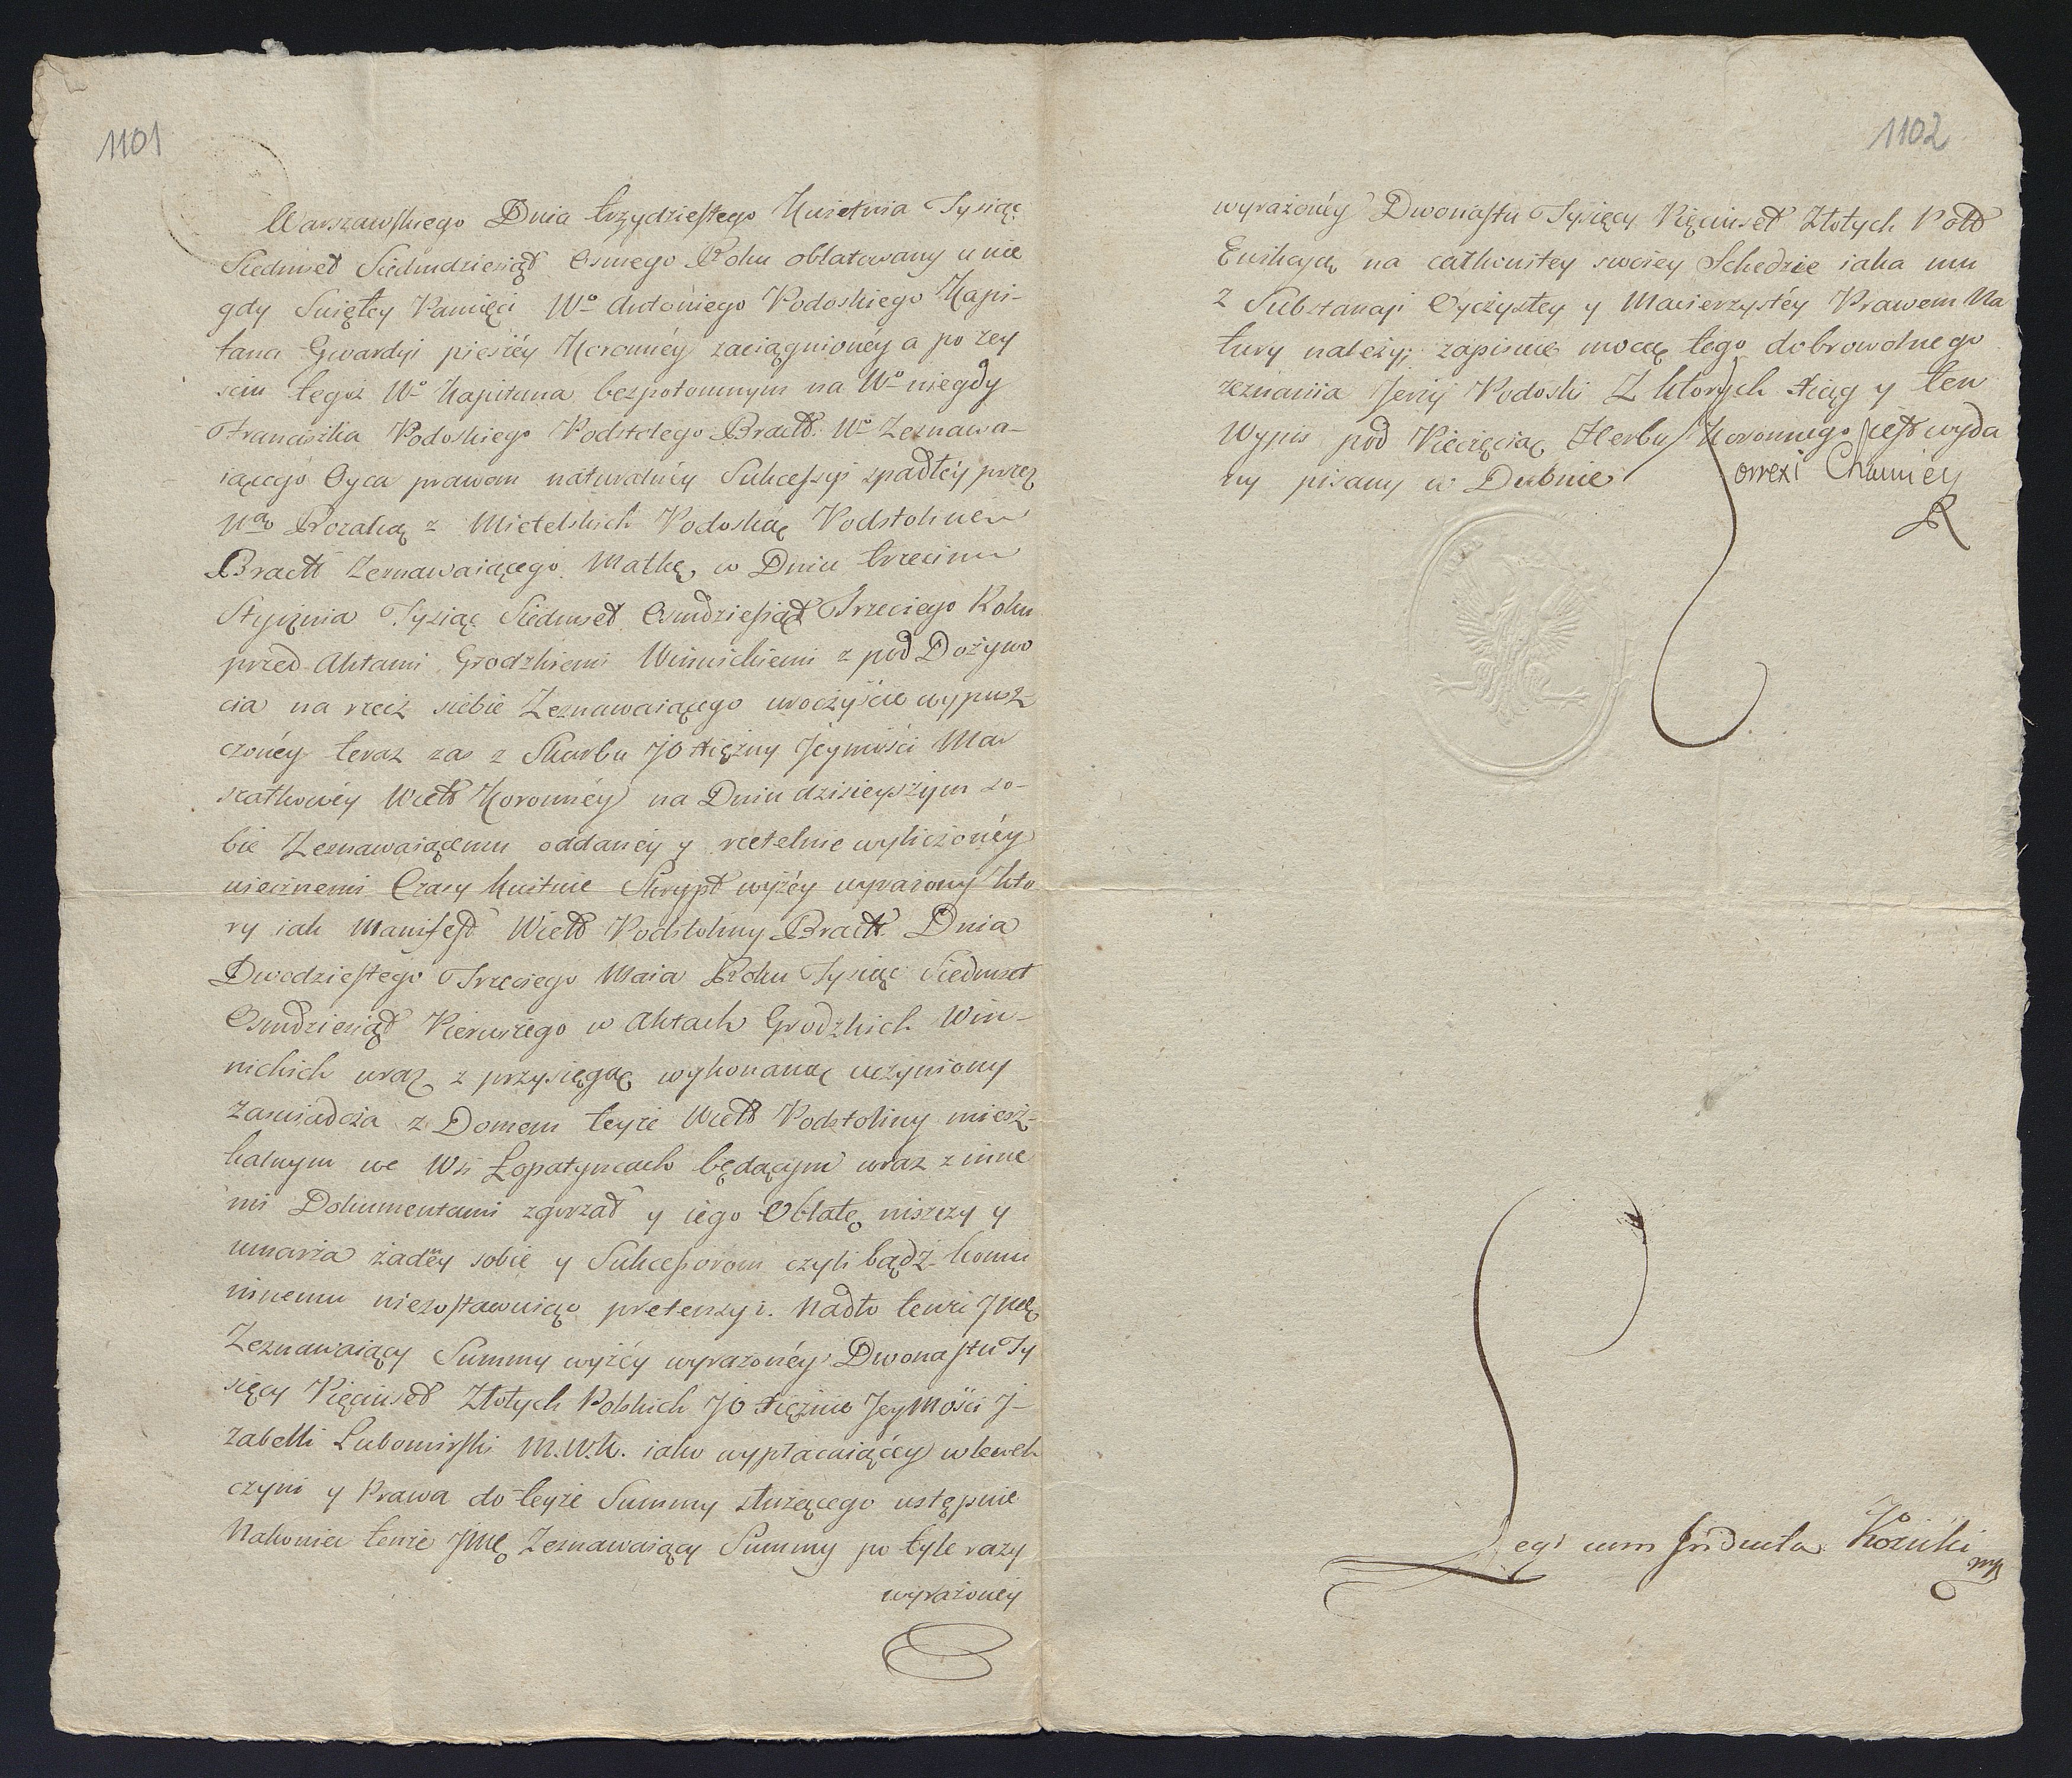 1101
Warszawskiego Dnia trzydziestego Kwietnia Tysiąc
Siedmset Siedmdziesiąt Osmego Roku oblatowany u nie
gdy Swiętey Pamięci Wo Antoniego Podoskiego Kapi-
tana Gwardyi pieszéy Koronnéy zaciągnionéy a po zey
sciu tegoż Wo Kapitana bezpotomnym na Wo niegdy
Franciszka Podoskiego Podstolego Bracłł. Wo Zeznawa-
iącego Oyca prawem naturalnéy Sukcessyi spadłéy przez
Rozalią z Mielelskich Podoską Podstolinę
Bracłł Zeznawaiącego Matkę, w Dniu trzecim
Stycznia Tysiąc Siedmset Osmdziesiąt Trzeciego Roku
przed Aktami Grodzkiemi Winnickiemi z pod Dożywo
cia na rzecz siebie Zeznawaiącego uroczyście wypusz-
czonéy teraz zas z Skarbu JO Xiężny Jeymości Mar
szałkowéy Wiel Koronnéy na Dniu dzisieyszym so-
bie Zeznawaiącemu oddanéy y rzetelnie wyliczonéy
wiecznemi Czasy kwituie Skrypt wyżéy wyrażony kto
ry iak Manifest Wiel Podstoliny Bracłł. Dnia
Dwodziestego Trzeciego Maia Roku Tysiąc Siedmset
Osmdziesiąt Pierwszego w Aktach Grodzkich Win-
nickich wraz z przysięgą wykonaną uczyniony
zaswiadcza z Domem teyże Wiel Podstoliny miesz-
kalnym we Wsi Łopatyncach będącym wraz z inne
mi Dokumentami zgorzał y iego Oblatę niszczy y
umarza żadnéy sobie y Sukcessorom czyli bądź komu
innemu niezostawuiąc pretensyi. Nadto tenże Jmć
Zeznawaiący Summy wyżéy wyrażonéy Dwonastu Ty
sięcy Pięciuset Złotych Polskich JO Xiężnie JeyMości J-
zabelli Lubomirski M.W.K. iako wypłacaiącéy wlewek
czyni y Prawa do teyże Summy służącego ustępuie
Nakoniec tenże Jmć Zeznawaiący Summy po tyle razy
wyrażonéy
1102
wyrażonéy Dwonastu Tysięcy Pięciuset Złotych Polł
Ewikcyą na całkowitey swoiey Schedzie iaka mu
z Substancyi Oyczystey y Macierzystéy Prawem Na
tury należy; zapisuie mocą tego dobrowolnego
zeznania Jerzy Podoski Z ktorych Xiąg y ten
Wypis pod Pieczęcią Herbu Koronnego jest wyda
ny pisany w Dubnie
orrexi Chamiéy
Legi cum Inducta Kozicki
mp